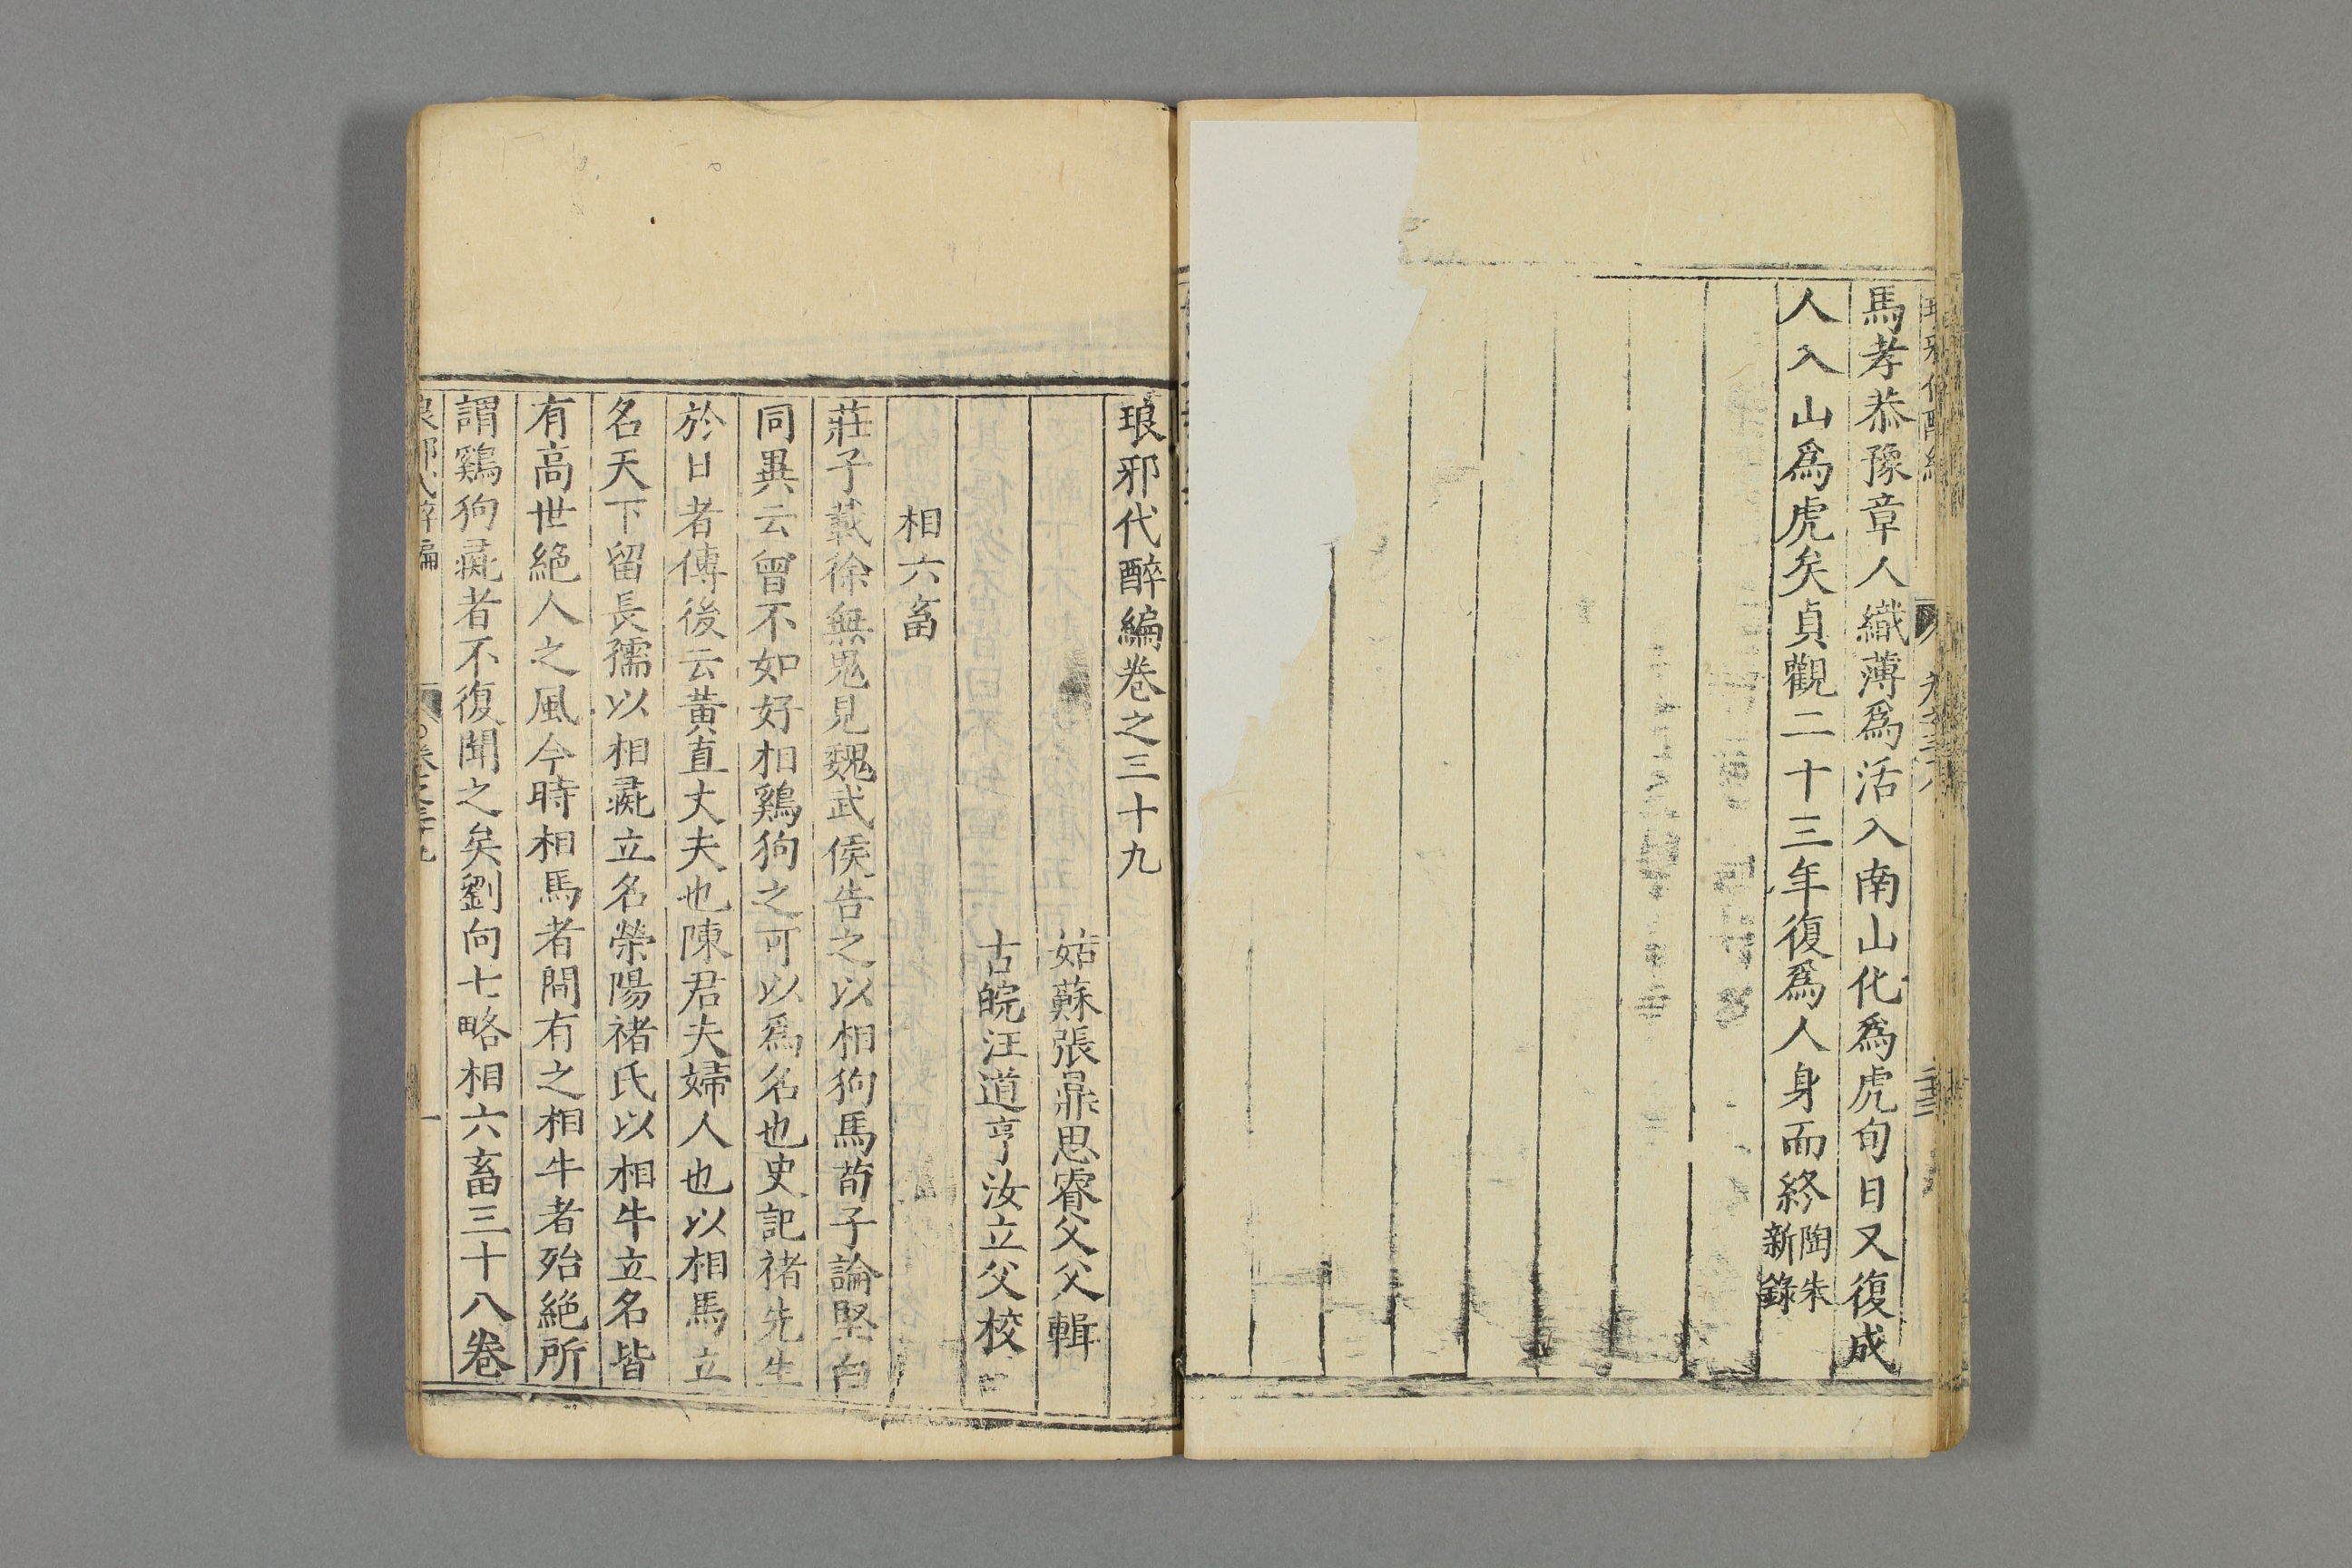 馬孝恭豫章人織薄爲活入南山化爲虎旬日又復成
人入山爲虎矣貞觀二十三年復爲人身而終陶朱新錄
琅邪代醉編卷之三十九
姑蘇張鼎思睿父父輯
古皖汪道亨汝立父校
相六畜
莊子載徐無鬼見魏武侯告之以相狗馬荀子論堅白
同異云曾不如好相鷄狗之可以爲名也史記褚先生
於日者傳後云黃直丈夫也陳君夫婦人也以相馬立
名天下留長孺以相彘立名滎陽褚氏以相牛立名皆
有高世絕人之風今時相馬者間有之相牛者殆絕所
謂鷄狗彘者不復聞之矣劉向七略相六畜三十八卷
卷之三十九
一